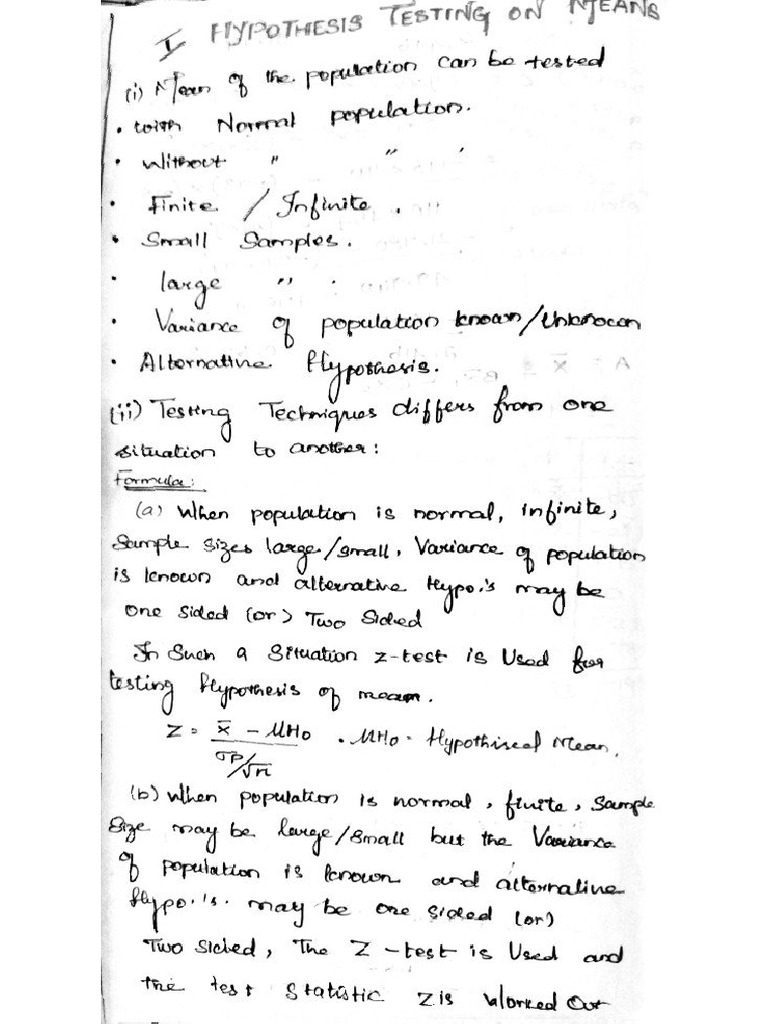 I HYPOTHESIS TESTING ON MEANS
(i) Mean of the population can be tested
• with Normal population.
• Without " " .
• Finite / Infinite .
• Small Samples.
• large " .
• Variance of population known/Unknown
• Alternative Hypothesis.
(ii) Testing Techniques differs from one
situation to another:
Formula:
(a) When population is normal, infinite,
Sample sizes large/small, Variance of population
is known and alternative Hypo.'s may be
one sided (or) Two Sided
In Such a Situation z-test is Used for
testing Hypothesis of mean.
Z = x̄ - μH0 . μH0 - Hypothiseal Mean.
σP/√n
(b) When population is normal, finite, Sample
Size may be large/small but the Variance
of population is known and alternative
Hypo.'s. may be one sided (or)
Two sided, The Z-test is Used and
the test Statistic Z is Worked Out